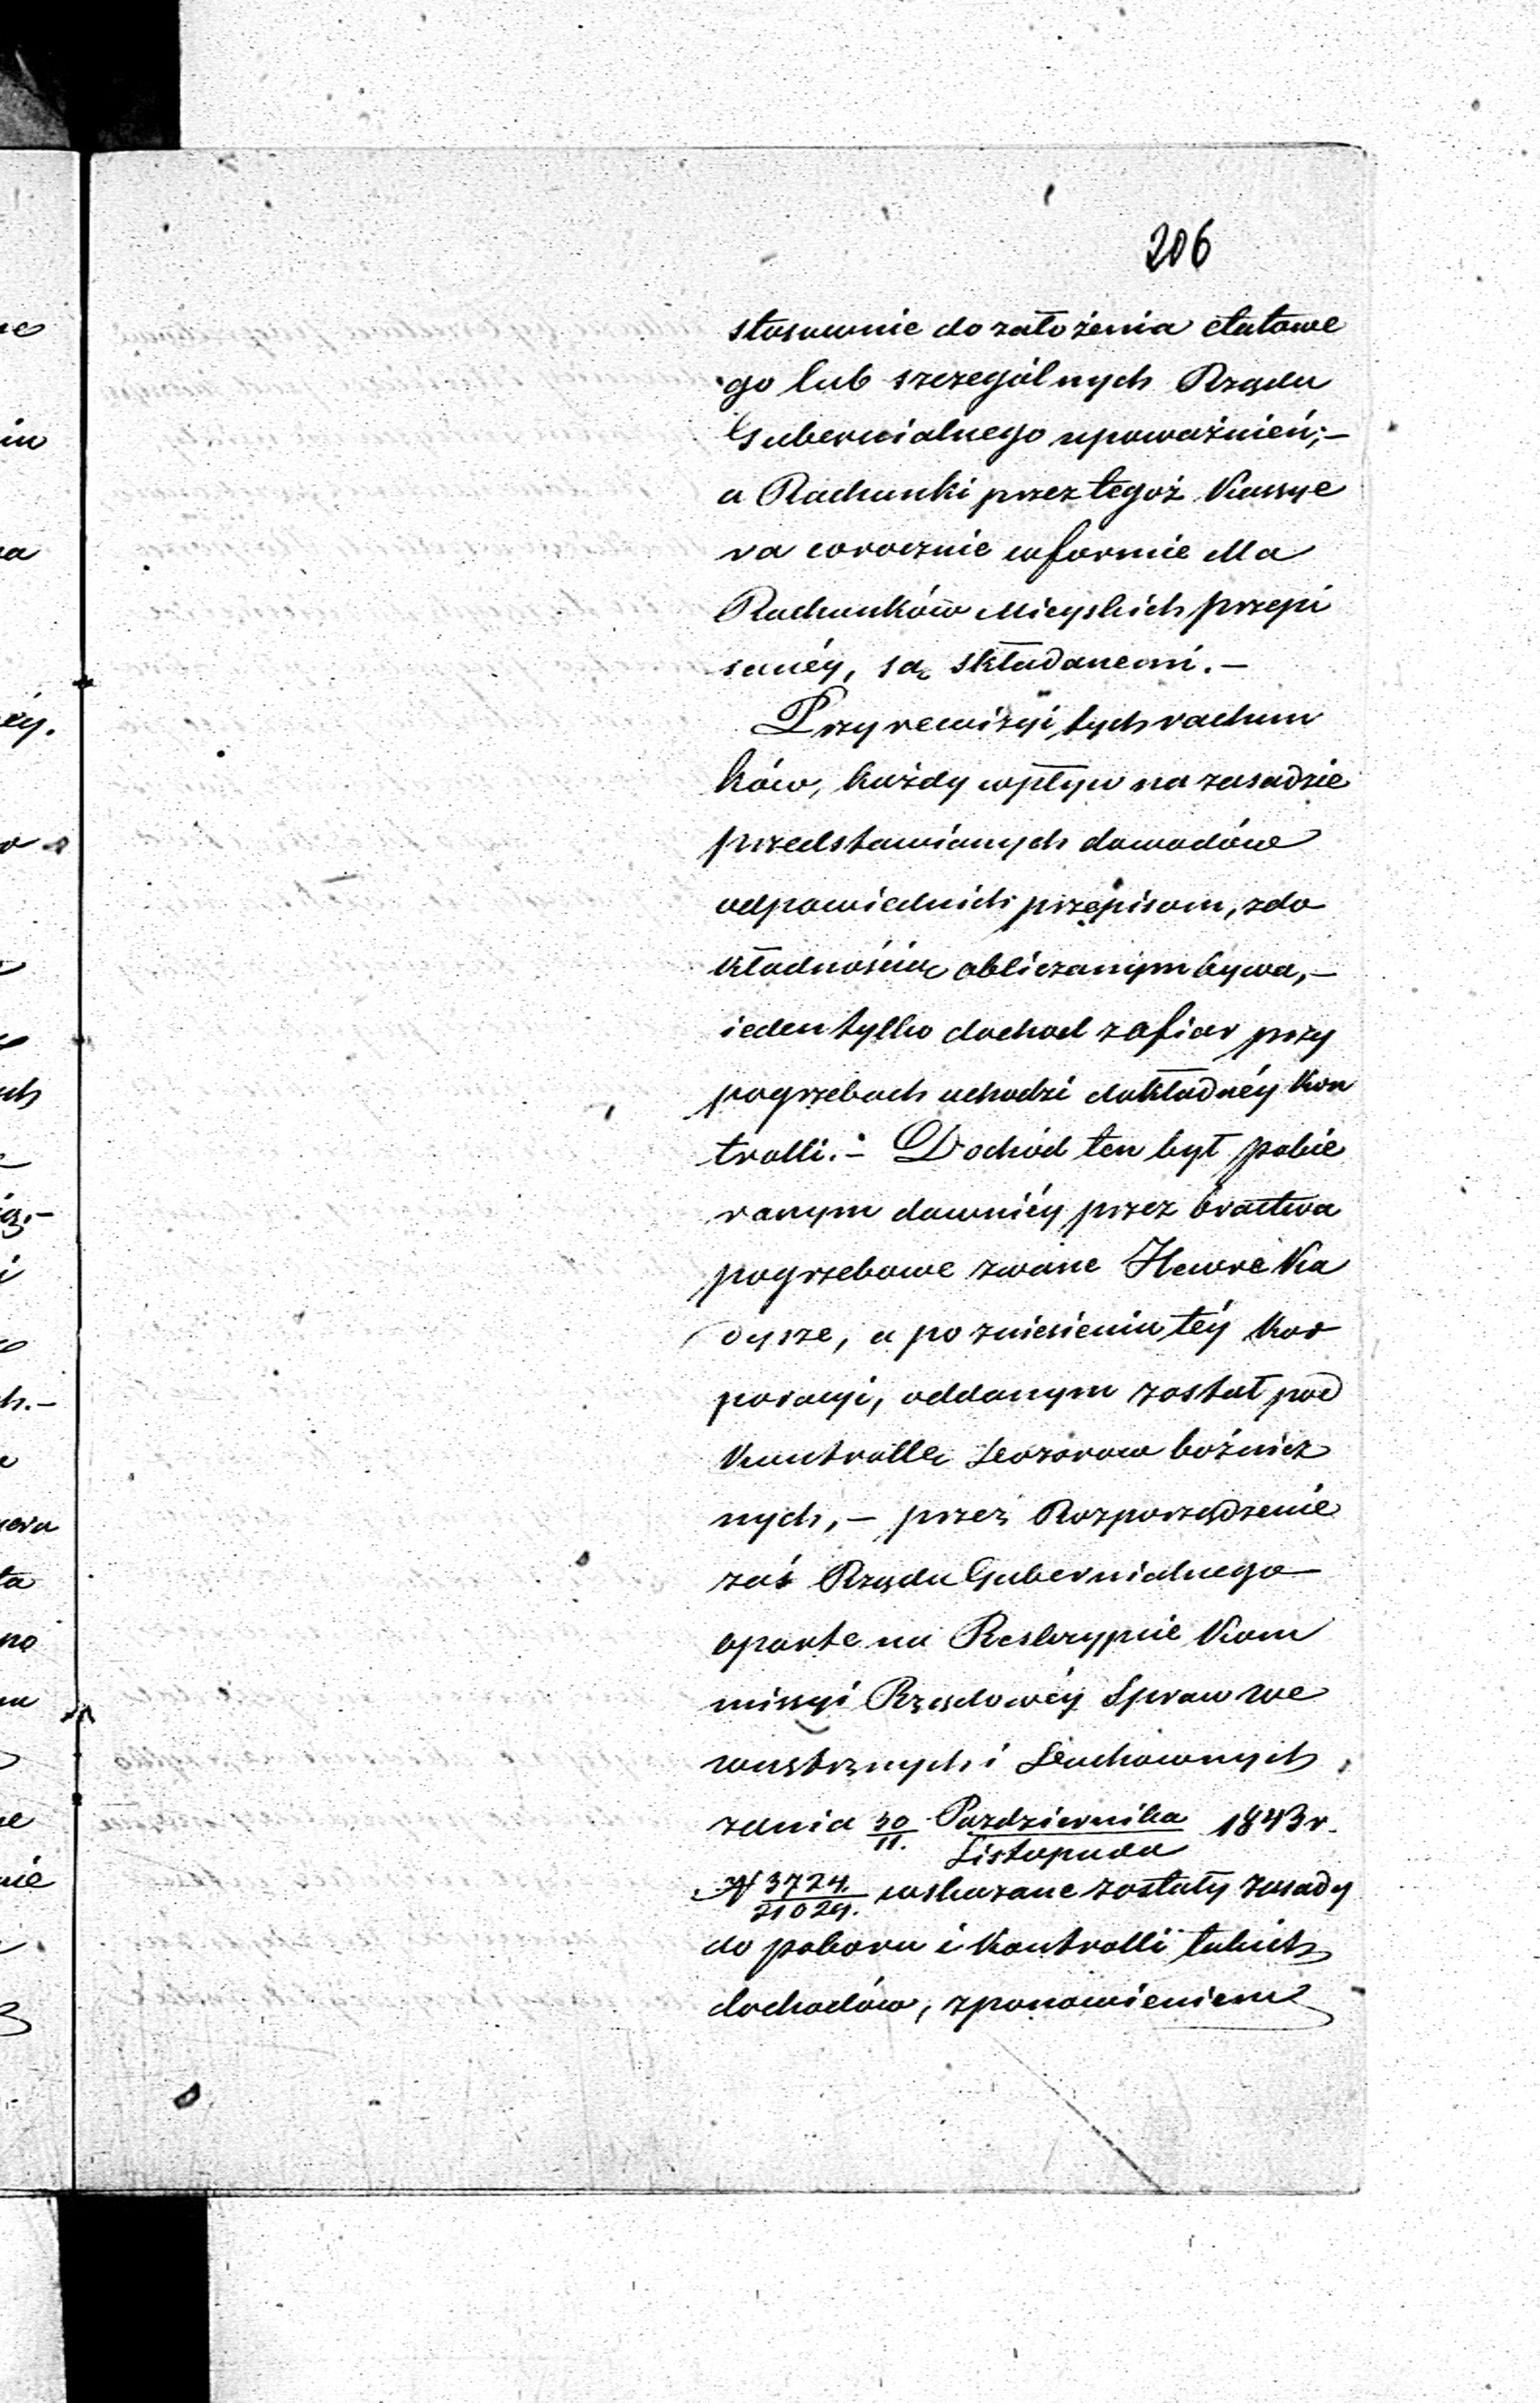 206
stosownie do założenia etatowe
go lub szczególnych Rządu
Gubernialnego upoważnień;—
a Rachunki przez tegoż Kassye
ra corocznie w formie dla
Rachunków Mieyskich przepi
sanéy, są składanemi.—
Przy rewizyi tych rachun
ków, każdy wpływ na zasadzie
przedstawianych dowodów
odpowiednich przepisom, z do
kładnością obliczanym bywa,—
ieden tylko dochod z ofiar przy
pogrzebach uchodzi dokładnéy Kon
trolli.— Dochód ten był pobie
ranym dawniéy przez bractwa
pogrzebowe zwane Hewre Ka
dysze, a po zniesieniu téy Kor
poracyi, oddanym został pod
Kontrollę Dozorow bóżnicz
nych,— przez Rozporządzenie
zaś Rządu Gubernialnego
oparte na Reskrypcie Kom
missyi Rządowéy Spraw We
wnętrznych i Duchownych
z dnia 30/11. Pazdziernika/Listopada 1843 r.
N 3724./21024. wskazane zostały zasady
do poboru i Kontrolli takich
dochodów, z ponowieniem